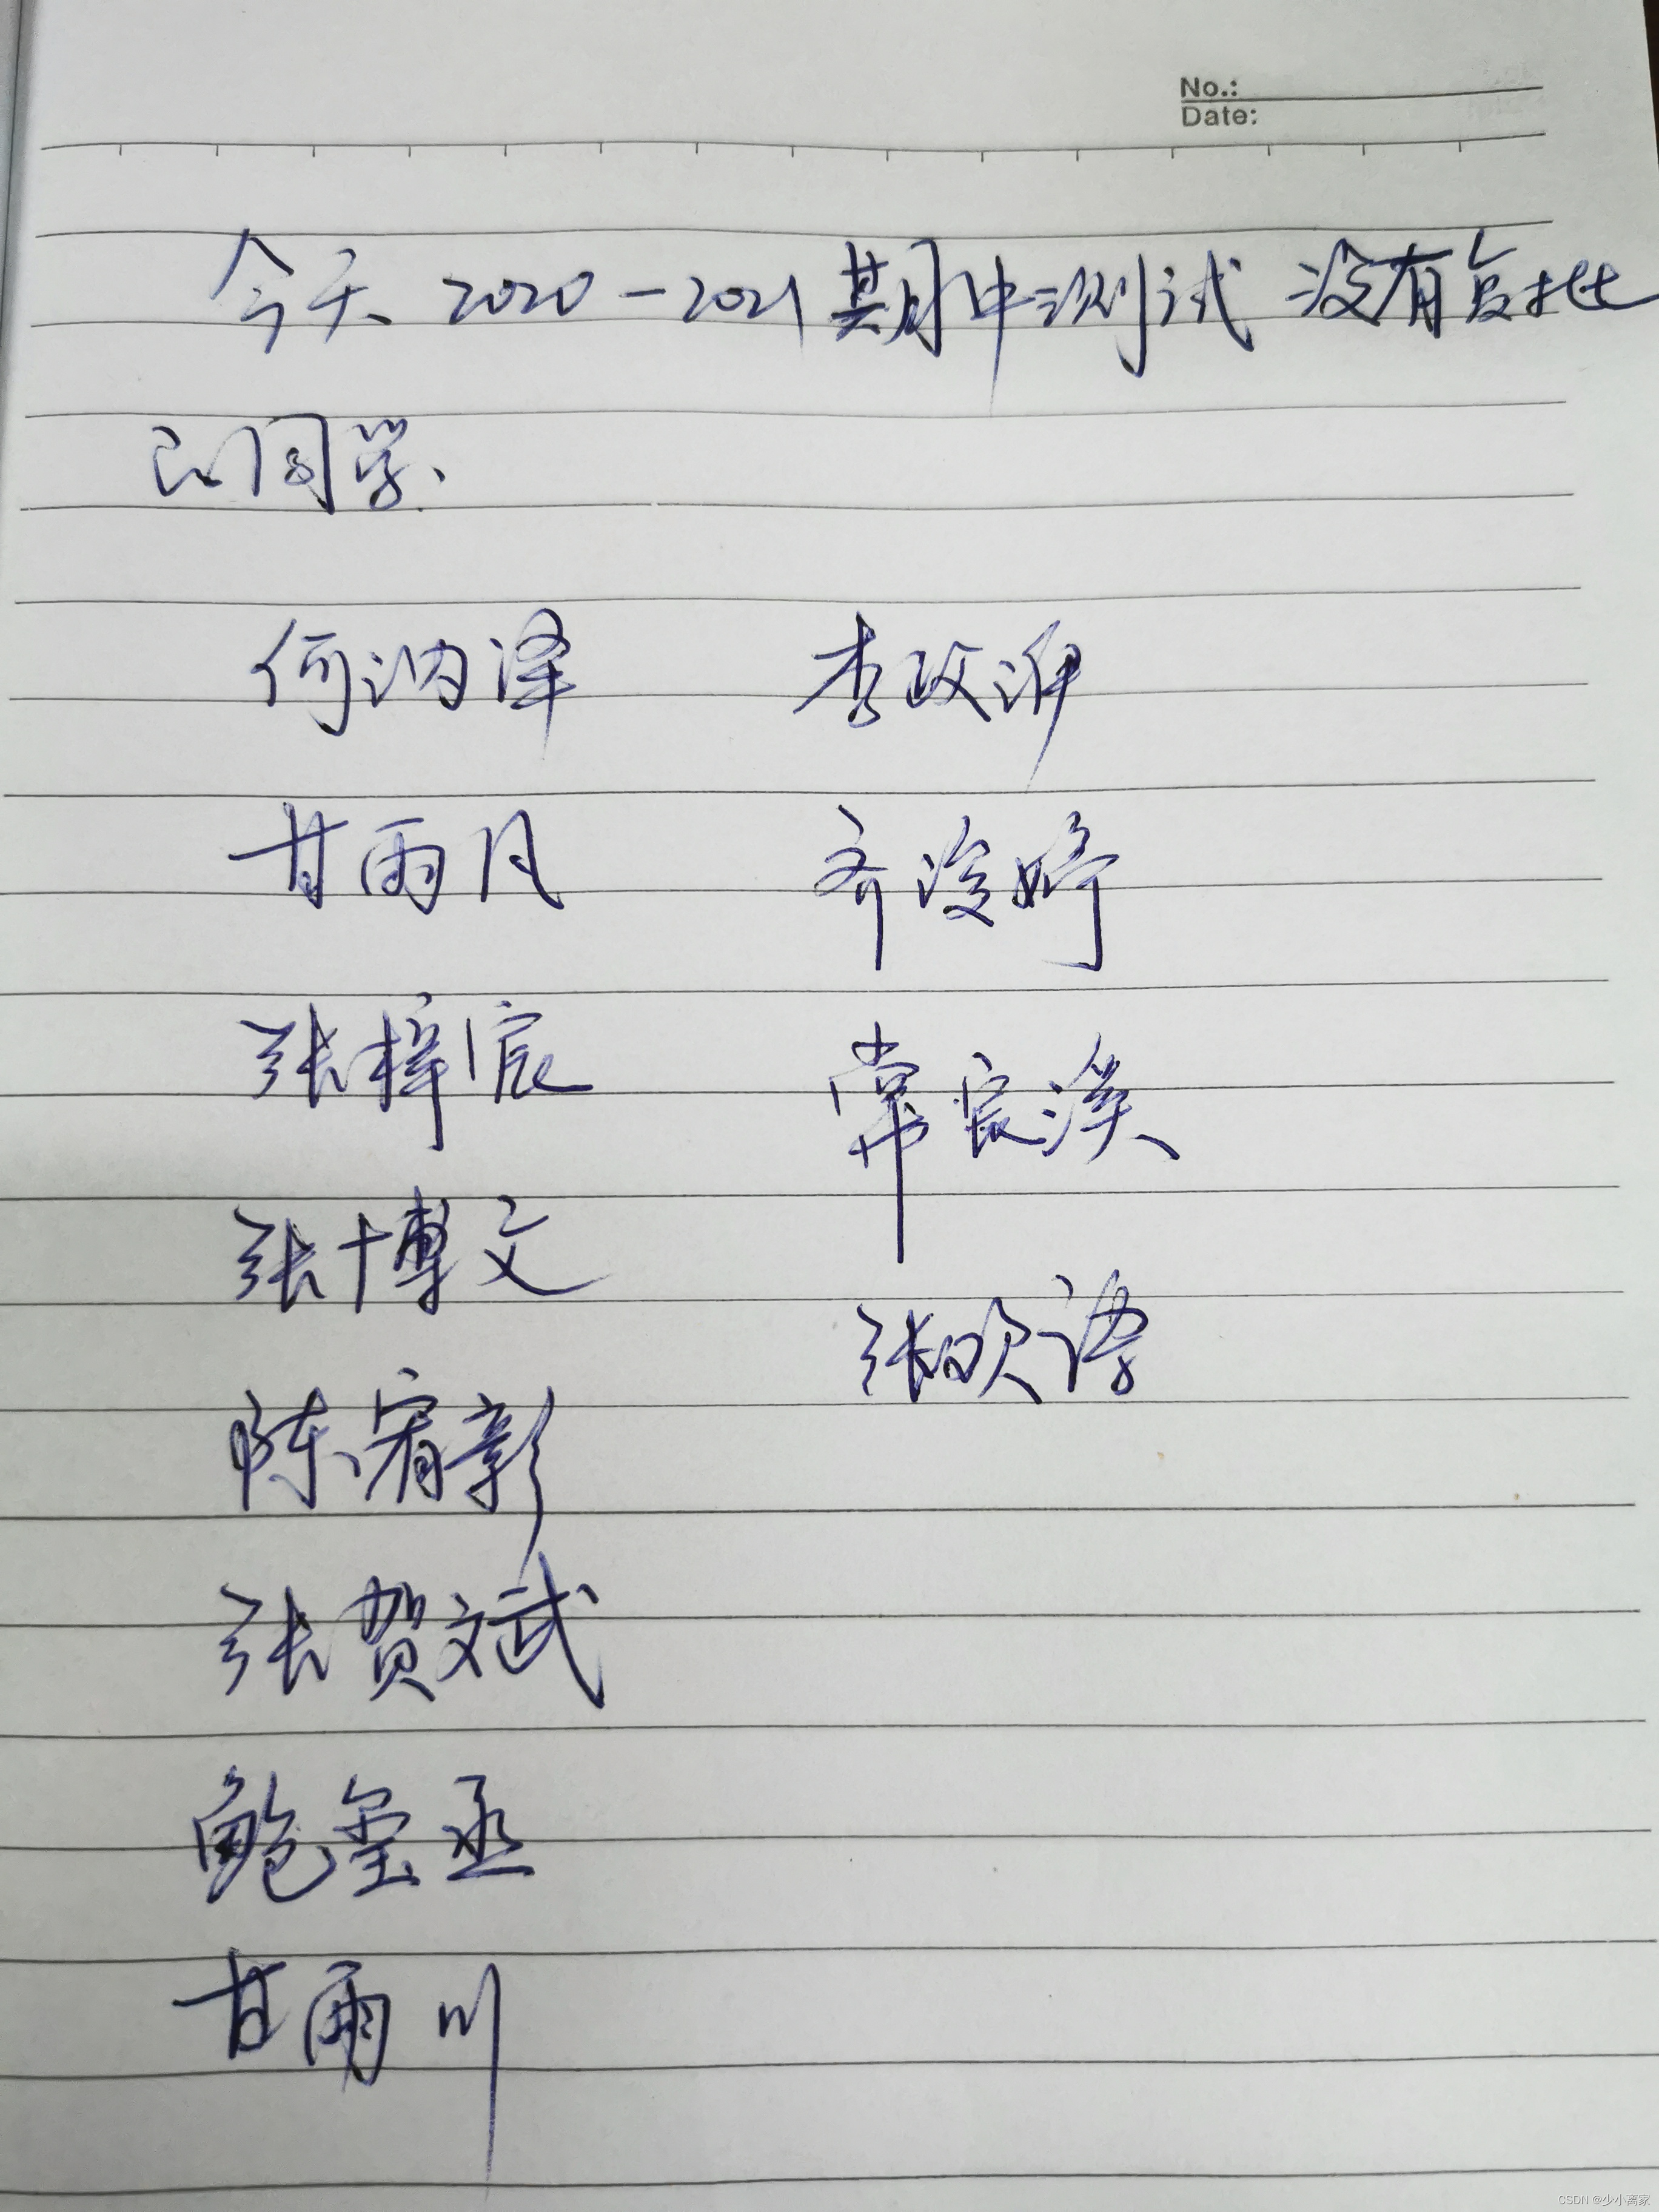 No.:
Date:
今天 2020-2021期中测试 没有复批
的同学、
何汭泽 李政
甘雨月 齐浚婷
张梓宸 常宸溪
张博文 张欣语
陈宥彰
张贺斌
鲍玺丞
甘雨川
CSDN @少小离家